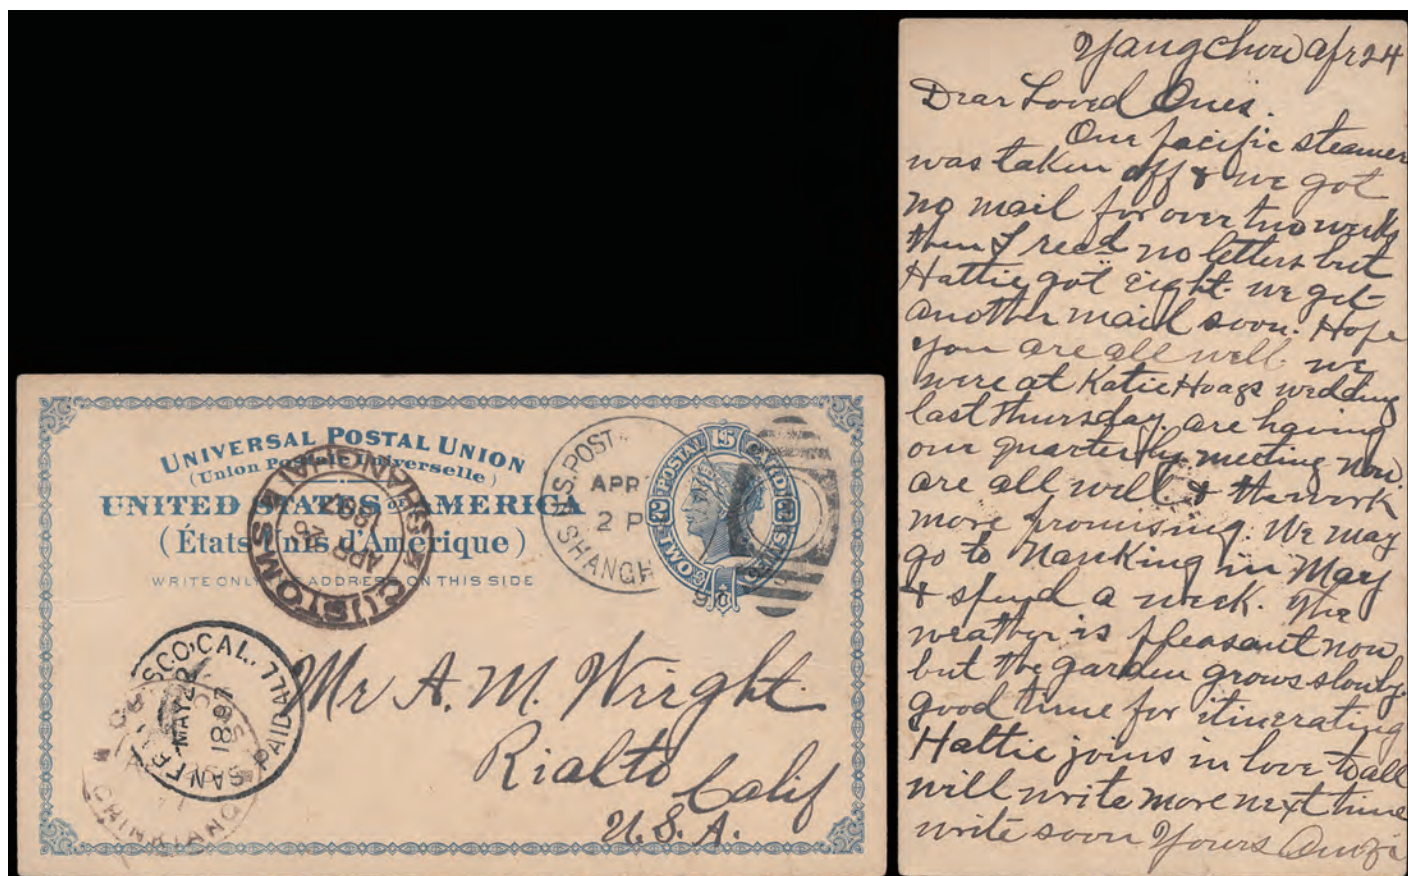 UNIVERSAL POSTAL UNION
(Union Postale Universelle)
UNITED STATES OF AMERICA
(États Unis d'Amérique)
WRITE ONLY ADDRESS ON THIS SIDE
POSTAL CARD
2 TWO CENTS 2
U.S. POST
APR
2 P
SHANGH
CUSTOMS
SHANGHAI
APR 26
1897
SAN FR SCO, CAL.
PAID ALL
MAY 22
1897
CUSTOMS
CHINKIANG
Mr A. M. Wright.
Rialto
Calif
U.S.A.
Yangchow Apr 24
Dear Loved Ones.
One pacific steamer
was taken off & we got
no mail for over two weeks
then I recd no letters but
Hattie got eight. we get
another mail soon. Hope
you are all well. we
were at Katie Hoags wedding
last thursday. are having
our quarterly meeting now.
are all well & the work
more promising. We may
go to Nanking in May
& spend a week. The
weather is pleasant now
but the garden grows slowly.
good time for itinerating
Hattie joins in love to all
will write more next time
write soon Yours